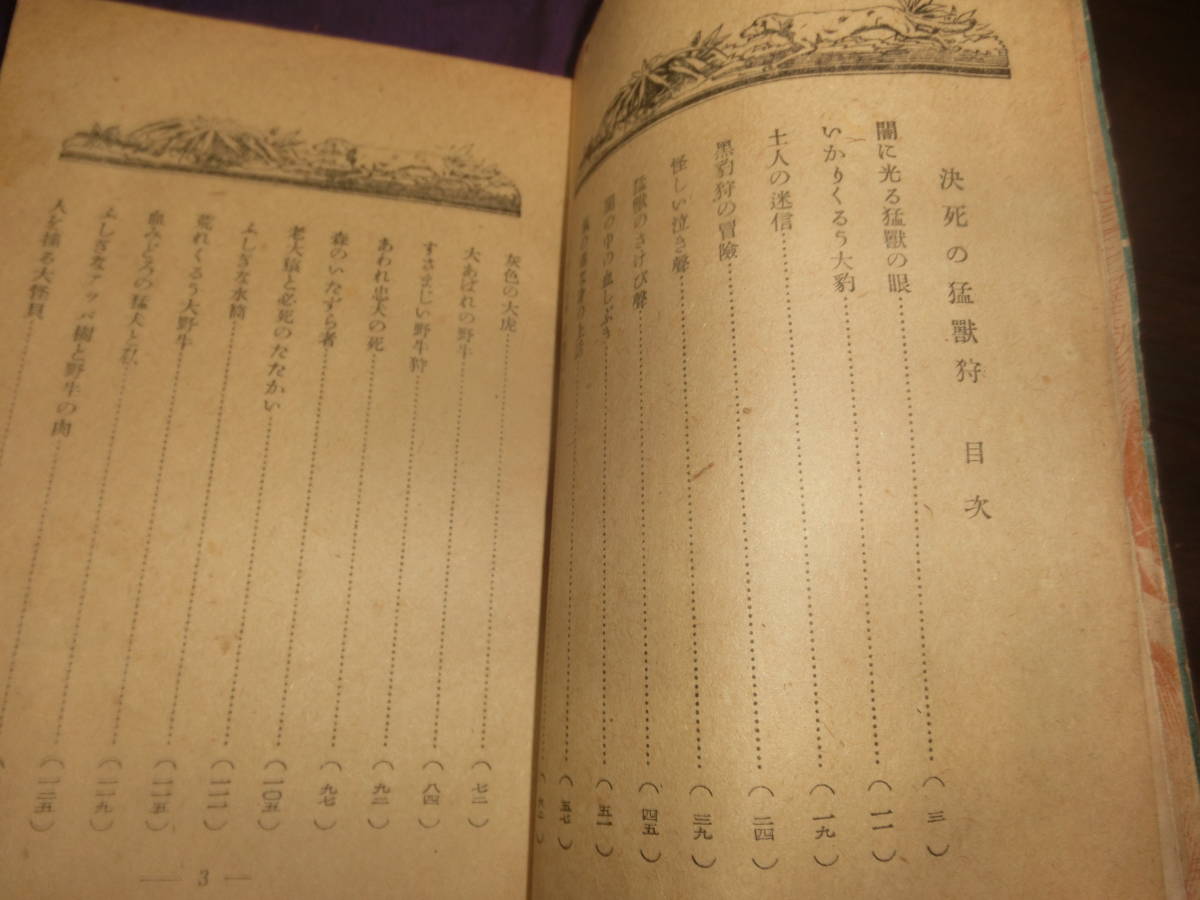 決死の猛獸狩 目次
闇に光る猛獸の眼……(三)
いかりくるう大豹……(一一)
土人の迷信……(一九)
黑豹狩の冒險……(二四)
怪しい泣き聲……(三九)
猛獸のさけび聲……(四五)
闇の中の血しぶき……(五一)
(五七)
灰色の大虎……(七二)
大あばれの野牛……(八四)
すさまじい野牛狩……(九二)
あわれ忠犬の死……(九七)
森のいたずら者……(一〇五)
老大猿と必死のたたかい……(一一一)
ふしぎな水筒……(一一五)
荒れくるう大野牛……(一一九)
血みどろの猛犬と私……(一二五)
ふしぎなアッパ樹と野牛の肉
人を捕る大怪貝
3